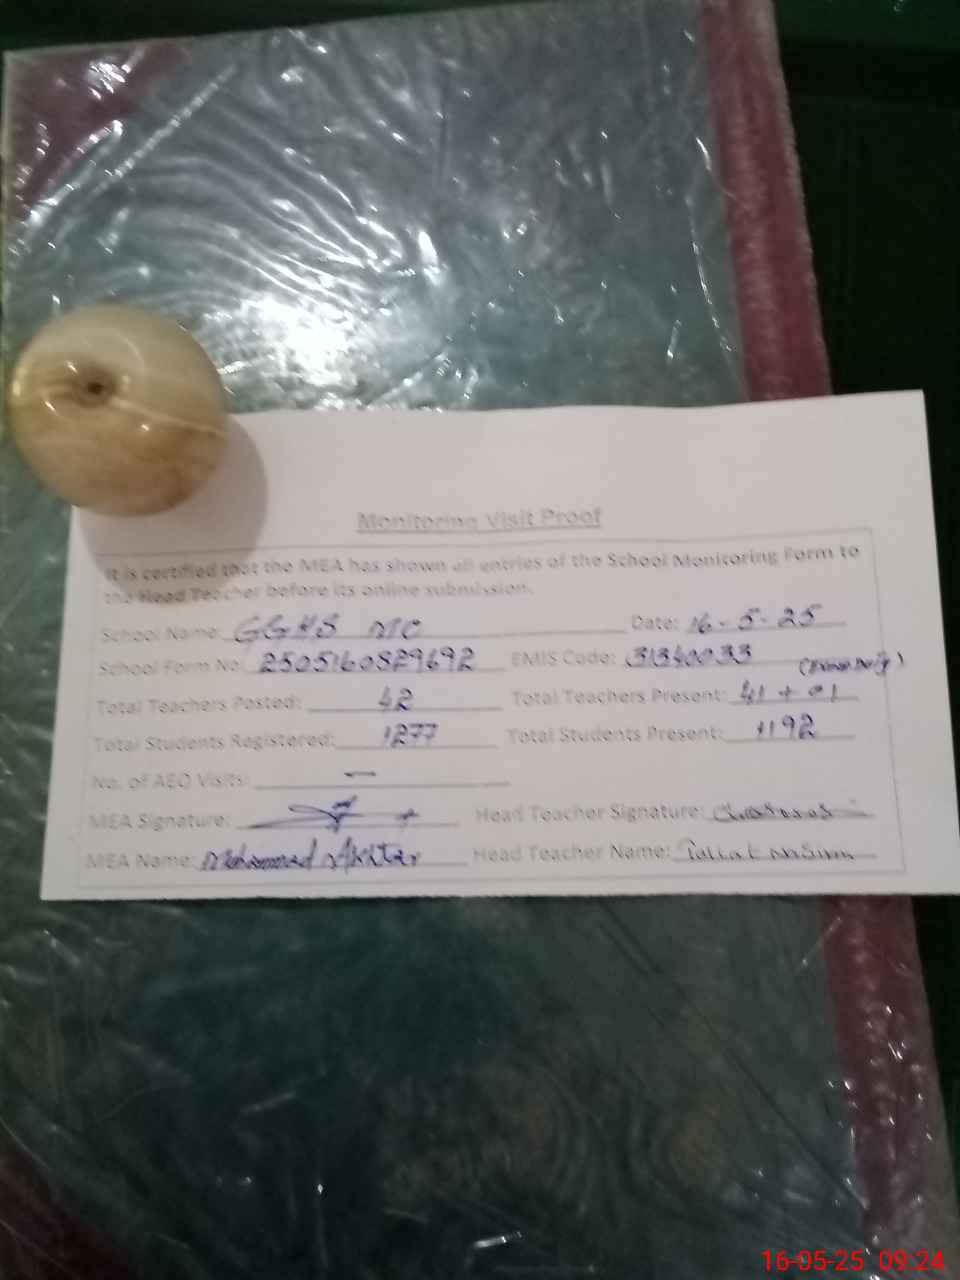 Monitoring Visit Proof
It is certified that the MEA has shown all entries of the School Monitoring Form to
the Head Teacher before its online submission.
School Name: GGHS MC Date: 16-5-25
School Form No: 2505160829692 EMIS Code: 31340033
Total Teachers Posted: 42 Total Teachers Present: 41 + 01 (Exam Duty)
Total Students Registered: 1277 Total Students Present: 1192
No. of AEO Visits: —
MEA Signature: Head Teacher Signature:
MEA Name: Mohammad Akhtar Head Teacher Name:
16-05-25 09:24